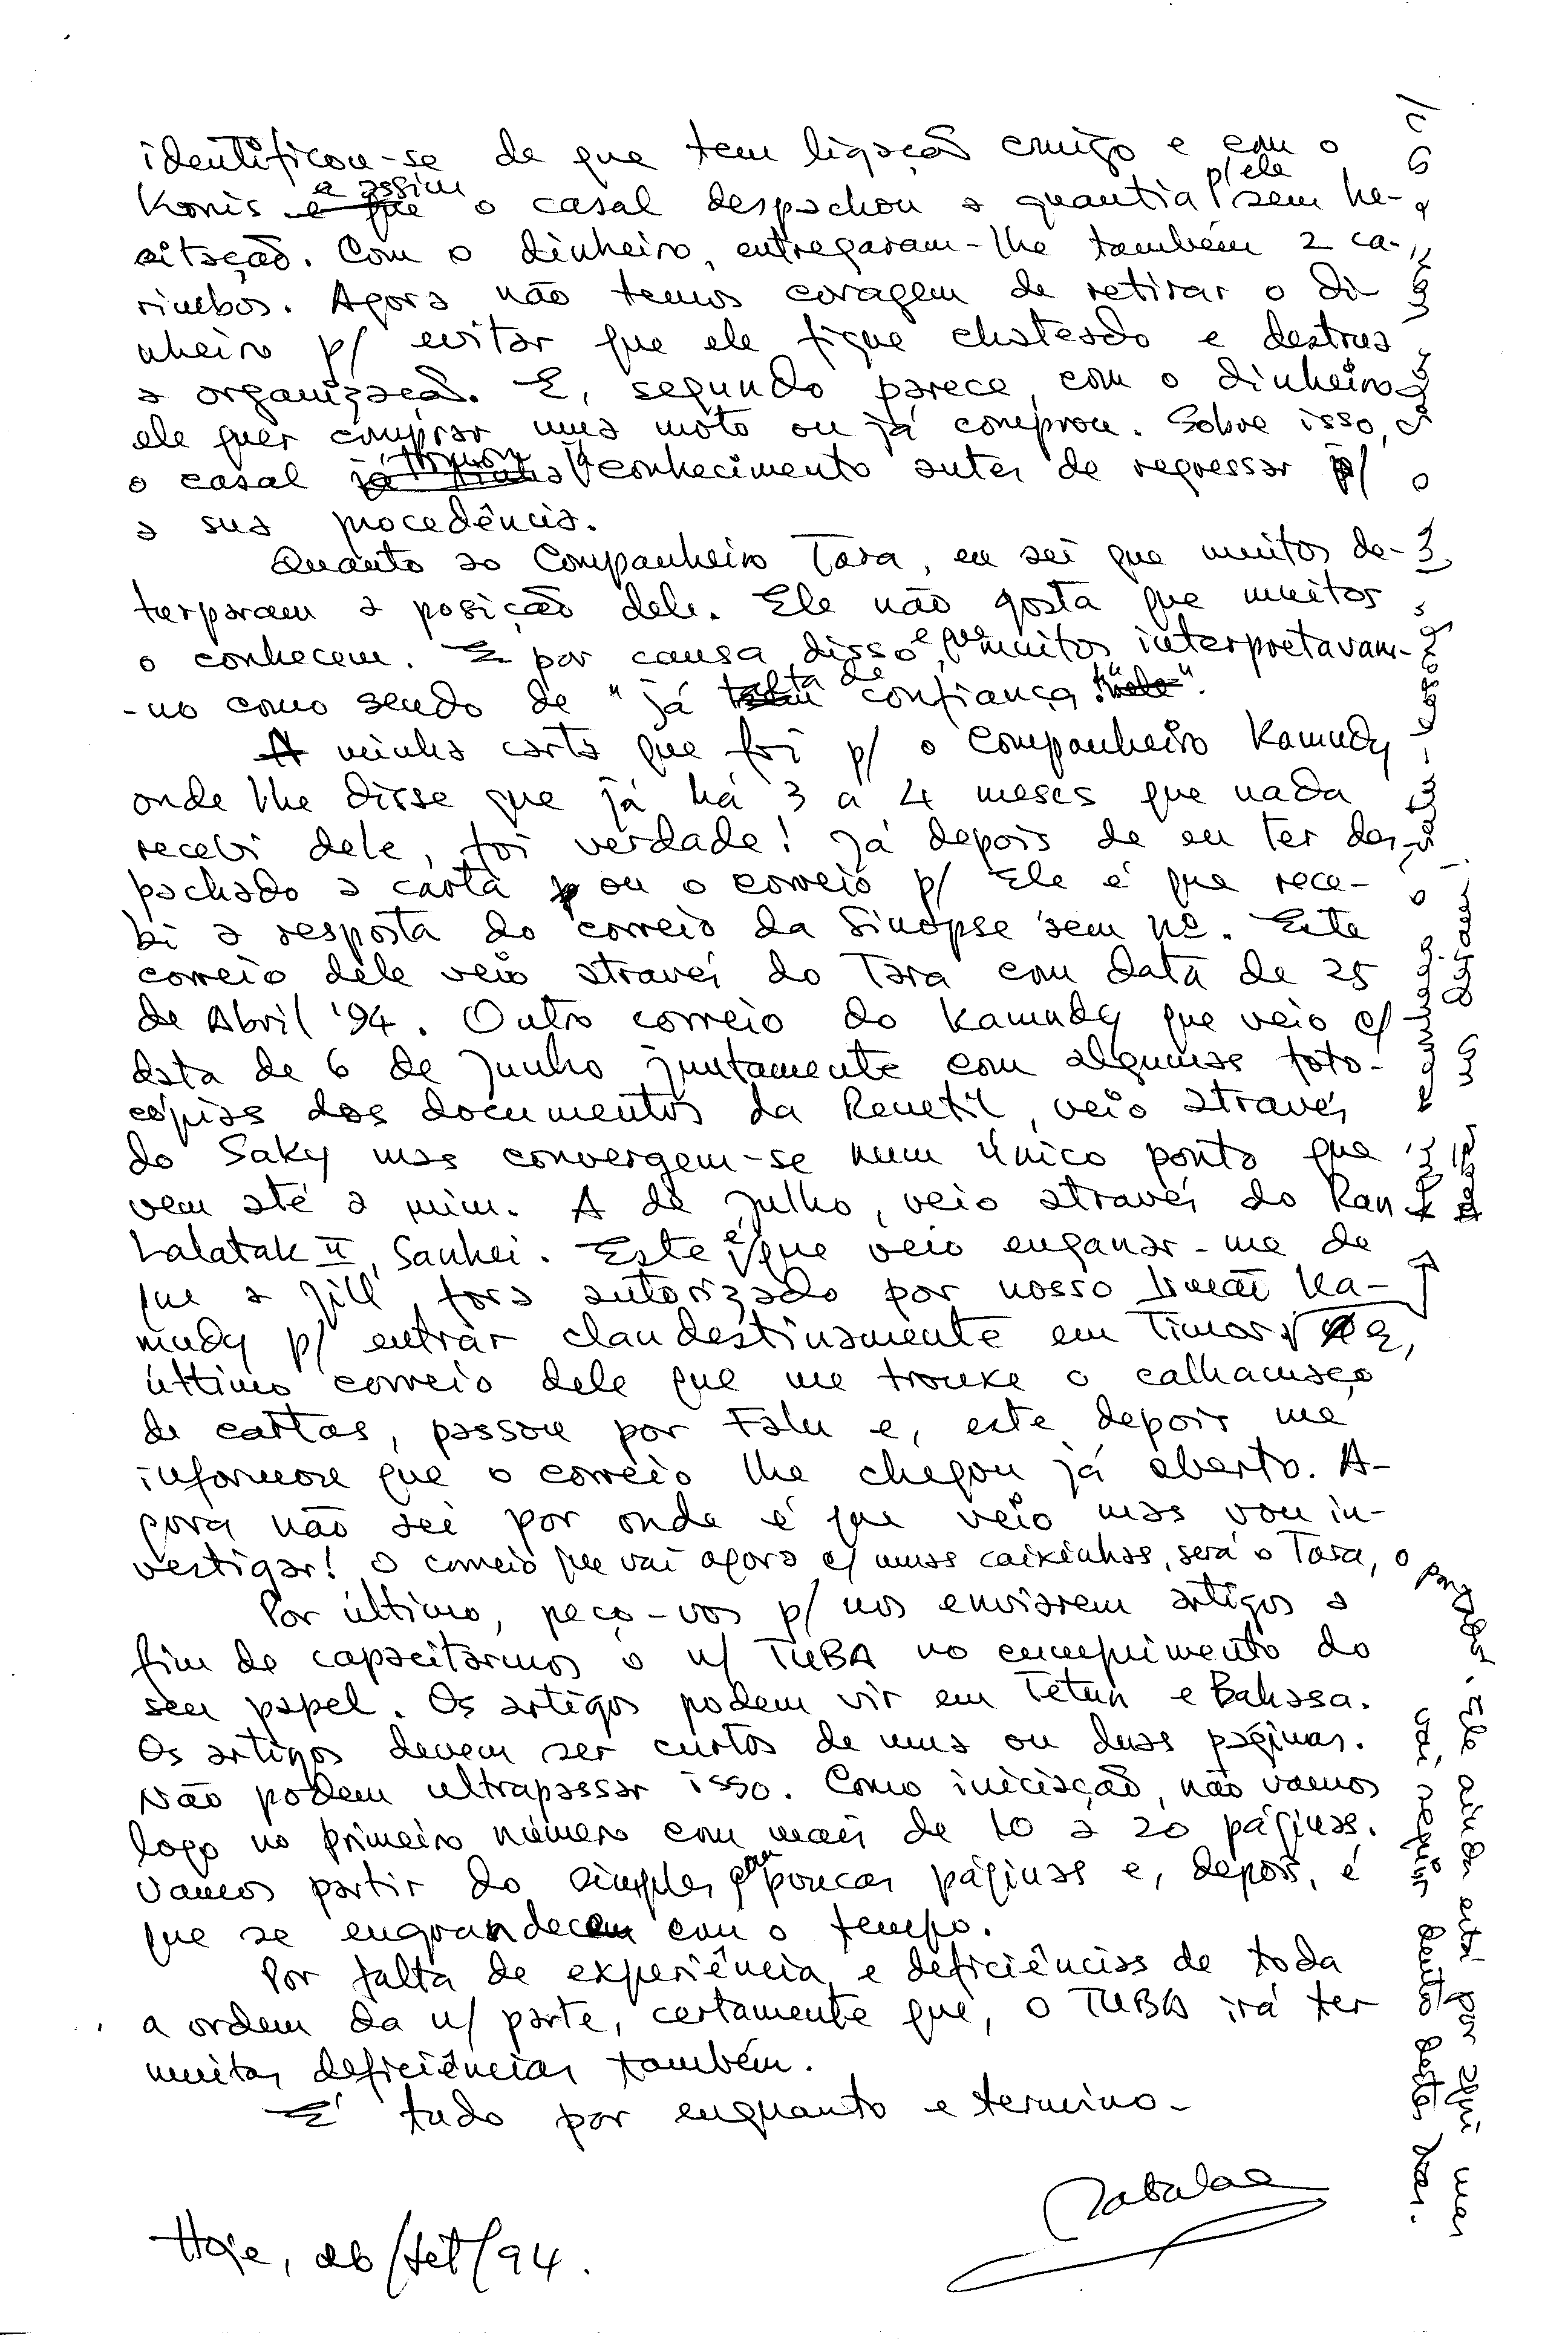 identificou-se de que tem ligação comigo e com o
Konis e assim o casal despachou a quantia p/ ele sem he-
sitação. Com o dinheiro, entregaram-lhe também 2 ca-
rimbos. Agora não temos coragem de retirar o di-
nheiro p/ evitar que ele fique chateado e destrua
a organização. E, segundo parece, com o dinheiro
ele quer comprar uma moto ou já comprou. Sobre isso,
o casal já tomou conhecimento antes de regressar p/
a sua procedência.
Quanto ao Companheiro Tara, eu sei que muitos de-
turparam a posição dele. Ele não gosta que muitos
o conhecem. E por causa disso é que muitos interpretavam-
-no como sendo de "já falta de confiança".
A minha carta que foi p/ o Companheiro Kamudy
onde lhe disse que já há 3 a 4 meses que nada
recebi dele, foi verdade! Já depois de eu ter des-
pachado a carta ou o correio p/ Ele é que rece-
bi a resposta do correio da Sinopse sem nº. Este
correio dele veio através do Tara com data de 25
de Abril '94. Outro correio do Kamudy que veio c/
data de 6 de Junho juntamente com algumas foto-
cópias dos documentos da Renetil, veio através
do Saky mas convergem-se num único ponto que
vem até a mim. A de Julho, veio através do Ran
Lalatak II, Sanhei. Este é que veio enganar-me de
que a Jill, fora autorizado por nosso Irmão Ka-
mudy p/ entrar clandestinamente em Timor
último correio dele que me trouxe o calhamaço
de cartas, passou por Falu e, este depois me
informou que o correio lhe chegou já aberto. A-
gora não sei por onde é que veio mas vou in-
vestigar! O correio que vai agora c/ umas caixinhas, será o Tara, o portador. Ele ainda está por aqui mas
vai seguir dentro destes dias.
Por último, peço-vos p/ nos enviarem artigos a
fim de capacitarmos o n/ TUBA no cumprimento do
seu papel. Os artigos podem vir em Tetun e Bahasa.
Os artigos devem ser curtos de uma ou duas páginas.
Não podem ultrapassar isso. Como iniciação, não vamos
logo no primeiro número com mais de 10 a 20 páginas.
Vamos partir do simples, poucas páginas e, depois, é
que se engrandecem com o tempo.
Por falta de experiência e deficiências de toda
a ordem da n/ parte, certamente que, o TUBA irá ter
muitas deficiências também.
É tudo por enquanto e termino-
Hoje, 26/Set/94.